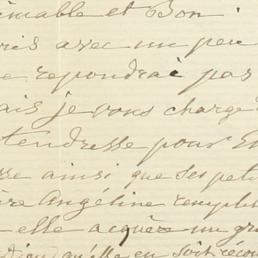 imable et Bon
ris avec un peu
e repondrai pas
ais je vous charge
tendresse pour
ainsi que ses pet
ère Angéline rempli
elle acquère un gr
qu'elle en soit récom